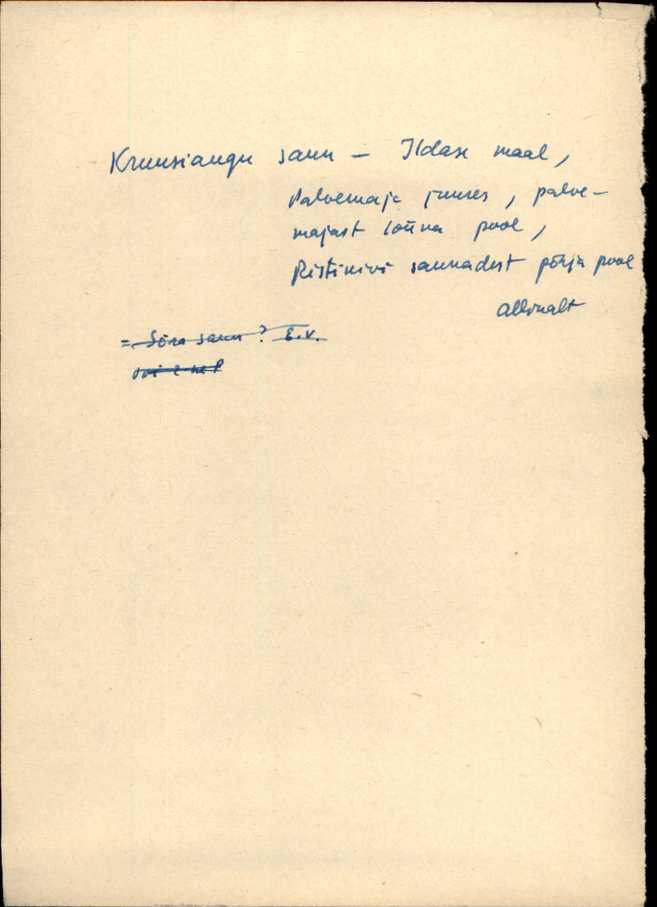 Kruusiaugu saun – Ildase maal,
Palvemaja juures, palve-
majast lõuna pool,
Ristikivi saunadest põhja pool
allikalt
= Sõra saun? E.V.